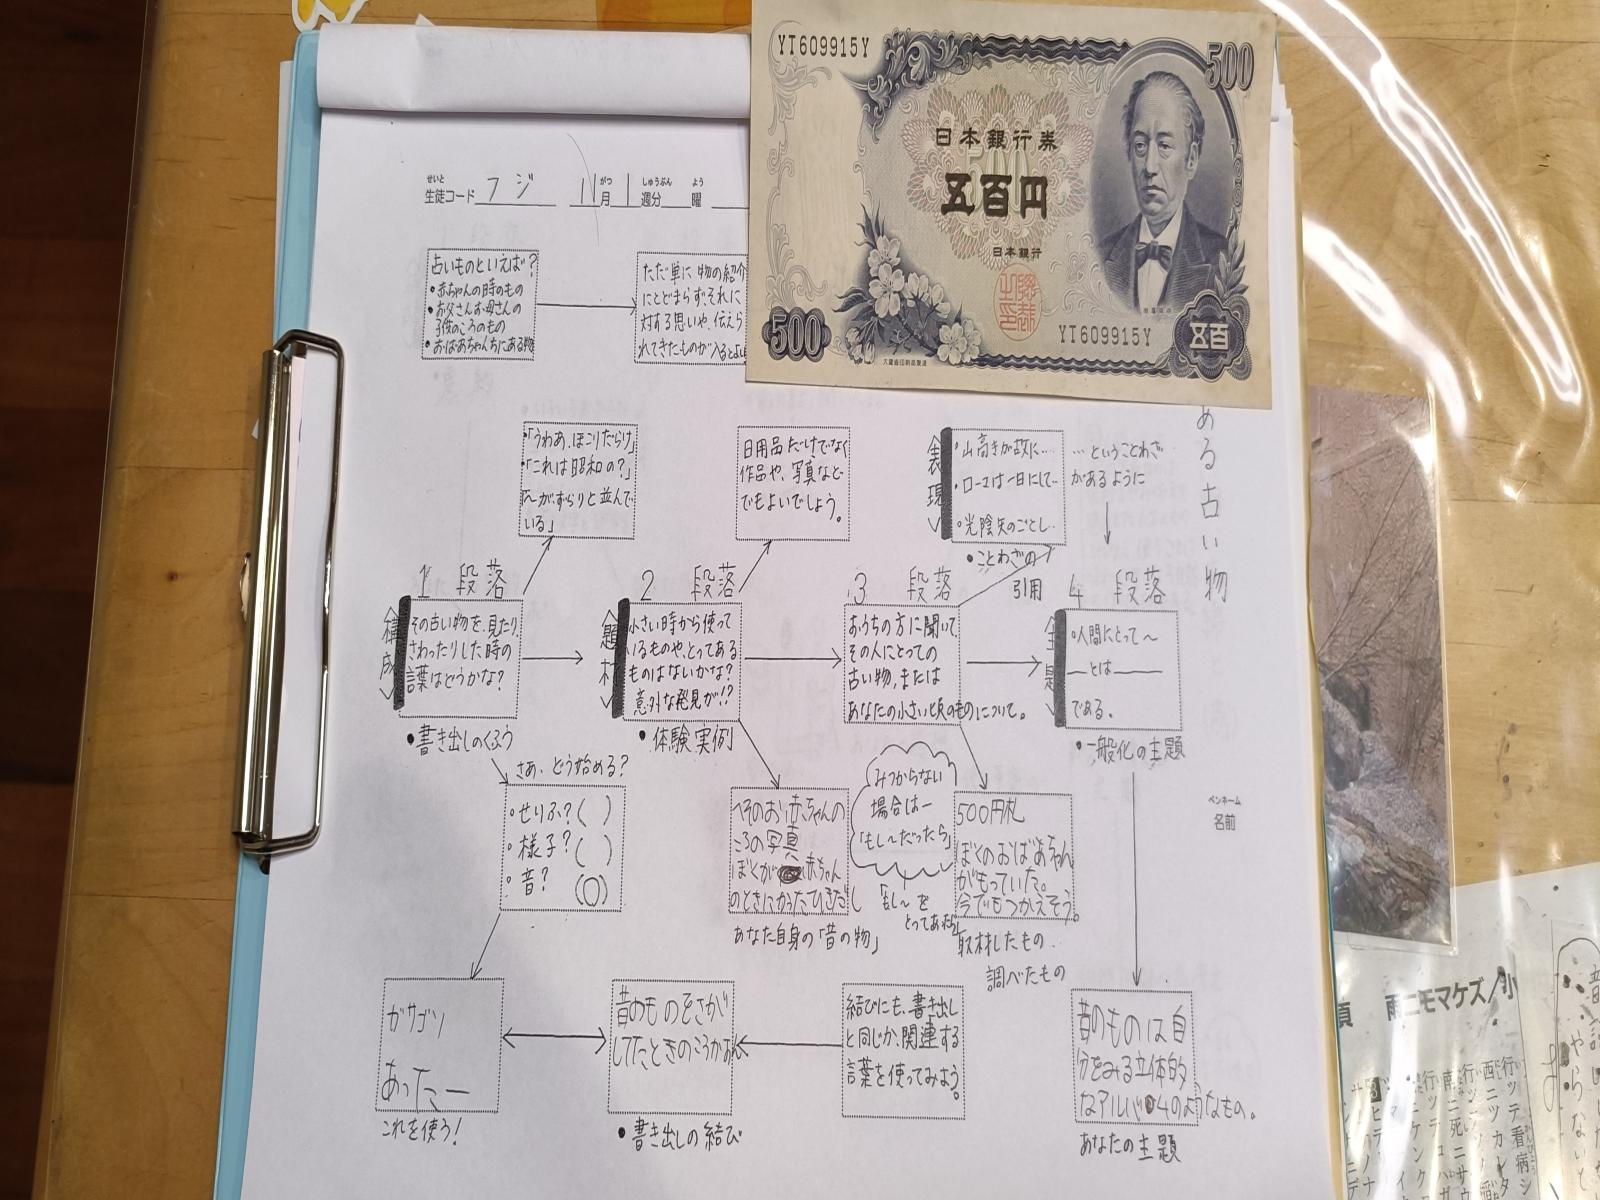 YT609915Y
500
日本銀行券
五百円
日本銀行
YT609915Y
500
五百
大蔵省印刷局製造
せいと がつ しゅうぶん よう
生徒コード フジ 11月 1週分 曜
古いものといえば?
・赤ちゃんの時のもの
・お父さんお母さんの
子供のころのもの
・おばあちゃんちにある物
ただ単に物の紹介
にとどまらず、それに
対する思いや、伝えら
れてきたものが入るとよい
ある古い物
・「うわあ、ほこりだらけ」
・「これは昭和の?」
「〜がずらりと並んで
いる」
日用品だけでなく
作品や、写真など
でもよいでしょう。
表現
・山高きが故に…
・ローマは一日にして…
・光陰矢のごとし…
…ということわざ
があるように
・ことわざの
引用
1段落
構成
その古い物を、見たり、
さわったりした時の
言葉はどうかな?
・書き出しのくふう
2段落
題材
小さい時から使って
いるものや、とってある
ものはないかな?
意外な発見が!?
・体験実例
3段落
おうちの方に聞いて、
その人にとっての
古い物、または
あなたの小さい頃のものについて。
4段落
主題
・人間にとって〜
―とは―
である。
・一般化の主題
さあ、どう始める?
・せりふ?( )
・様子?( )
・音?(○)
へそのお、赤ちゃんの
ころの写真
ぼくが赤ちゃん
のときにかったひきだし
あなた自身の「昔の物」
みつからない
場合は―
「もし〜だったら」
「もし〜を
とってあれば」
500円札
ぼくのおばあちゃん
がもっていた。
今でもつかえそう。
取材したもの
調べたもの
ペンネーム
名前
ガサゴソ
あったー
これを使う!
昔のものをさが
してたときのころがあん
・書き出しの結び
結びにも、書き出し
と同じか、関連する
言葉を使ってみよう。
昔のものは自
分をみる立体的
なアルバムのようなもの。
あなたの主題
雨ニモマケズ/小